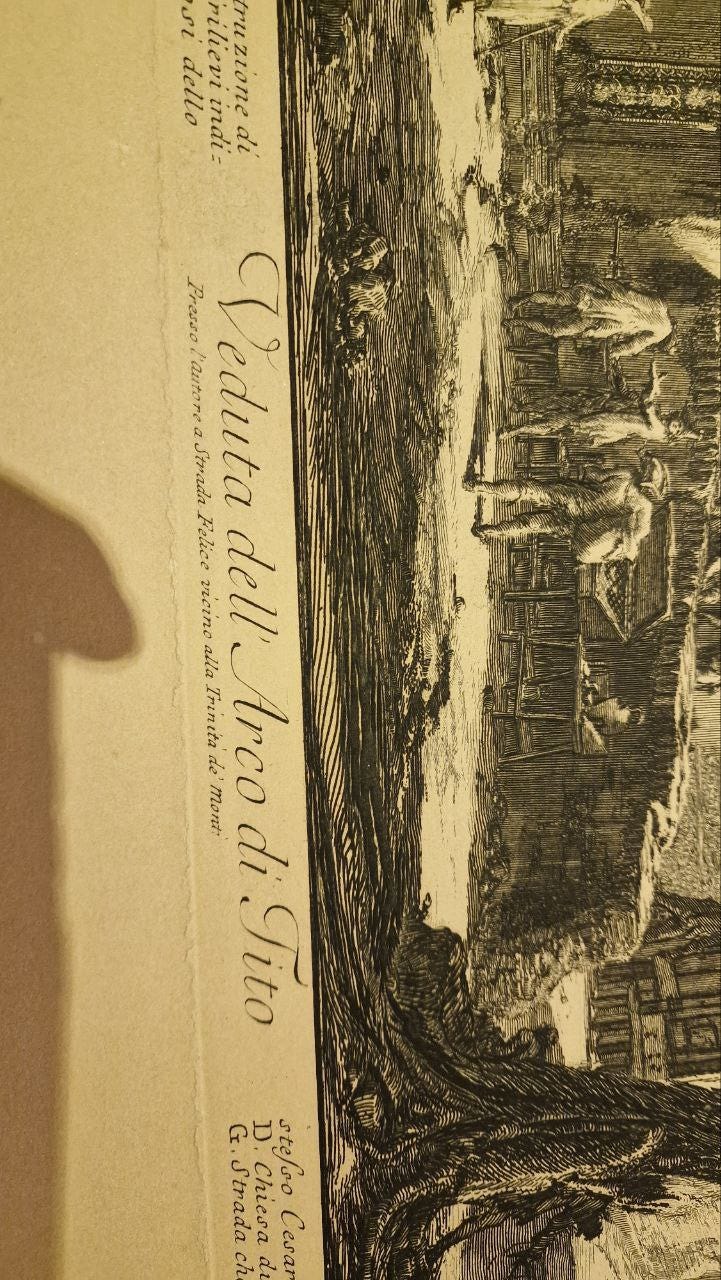 truzione di
rilievi indi=
osi dello
Veduta dell' Arco di Tito
Presso l'autore a Strada Felice vicino alla Trinità de' Monti
steſso Cesar
D. Chiesa du
G. Strada che